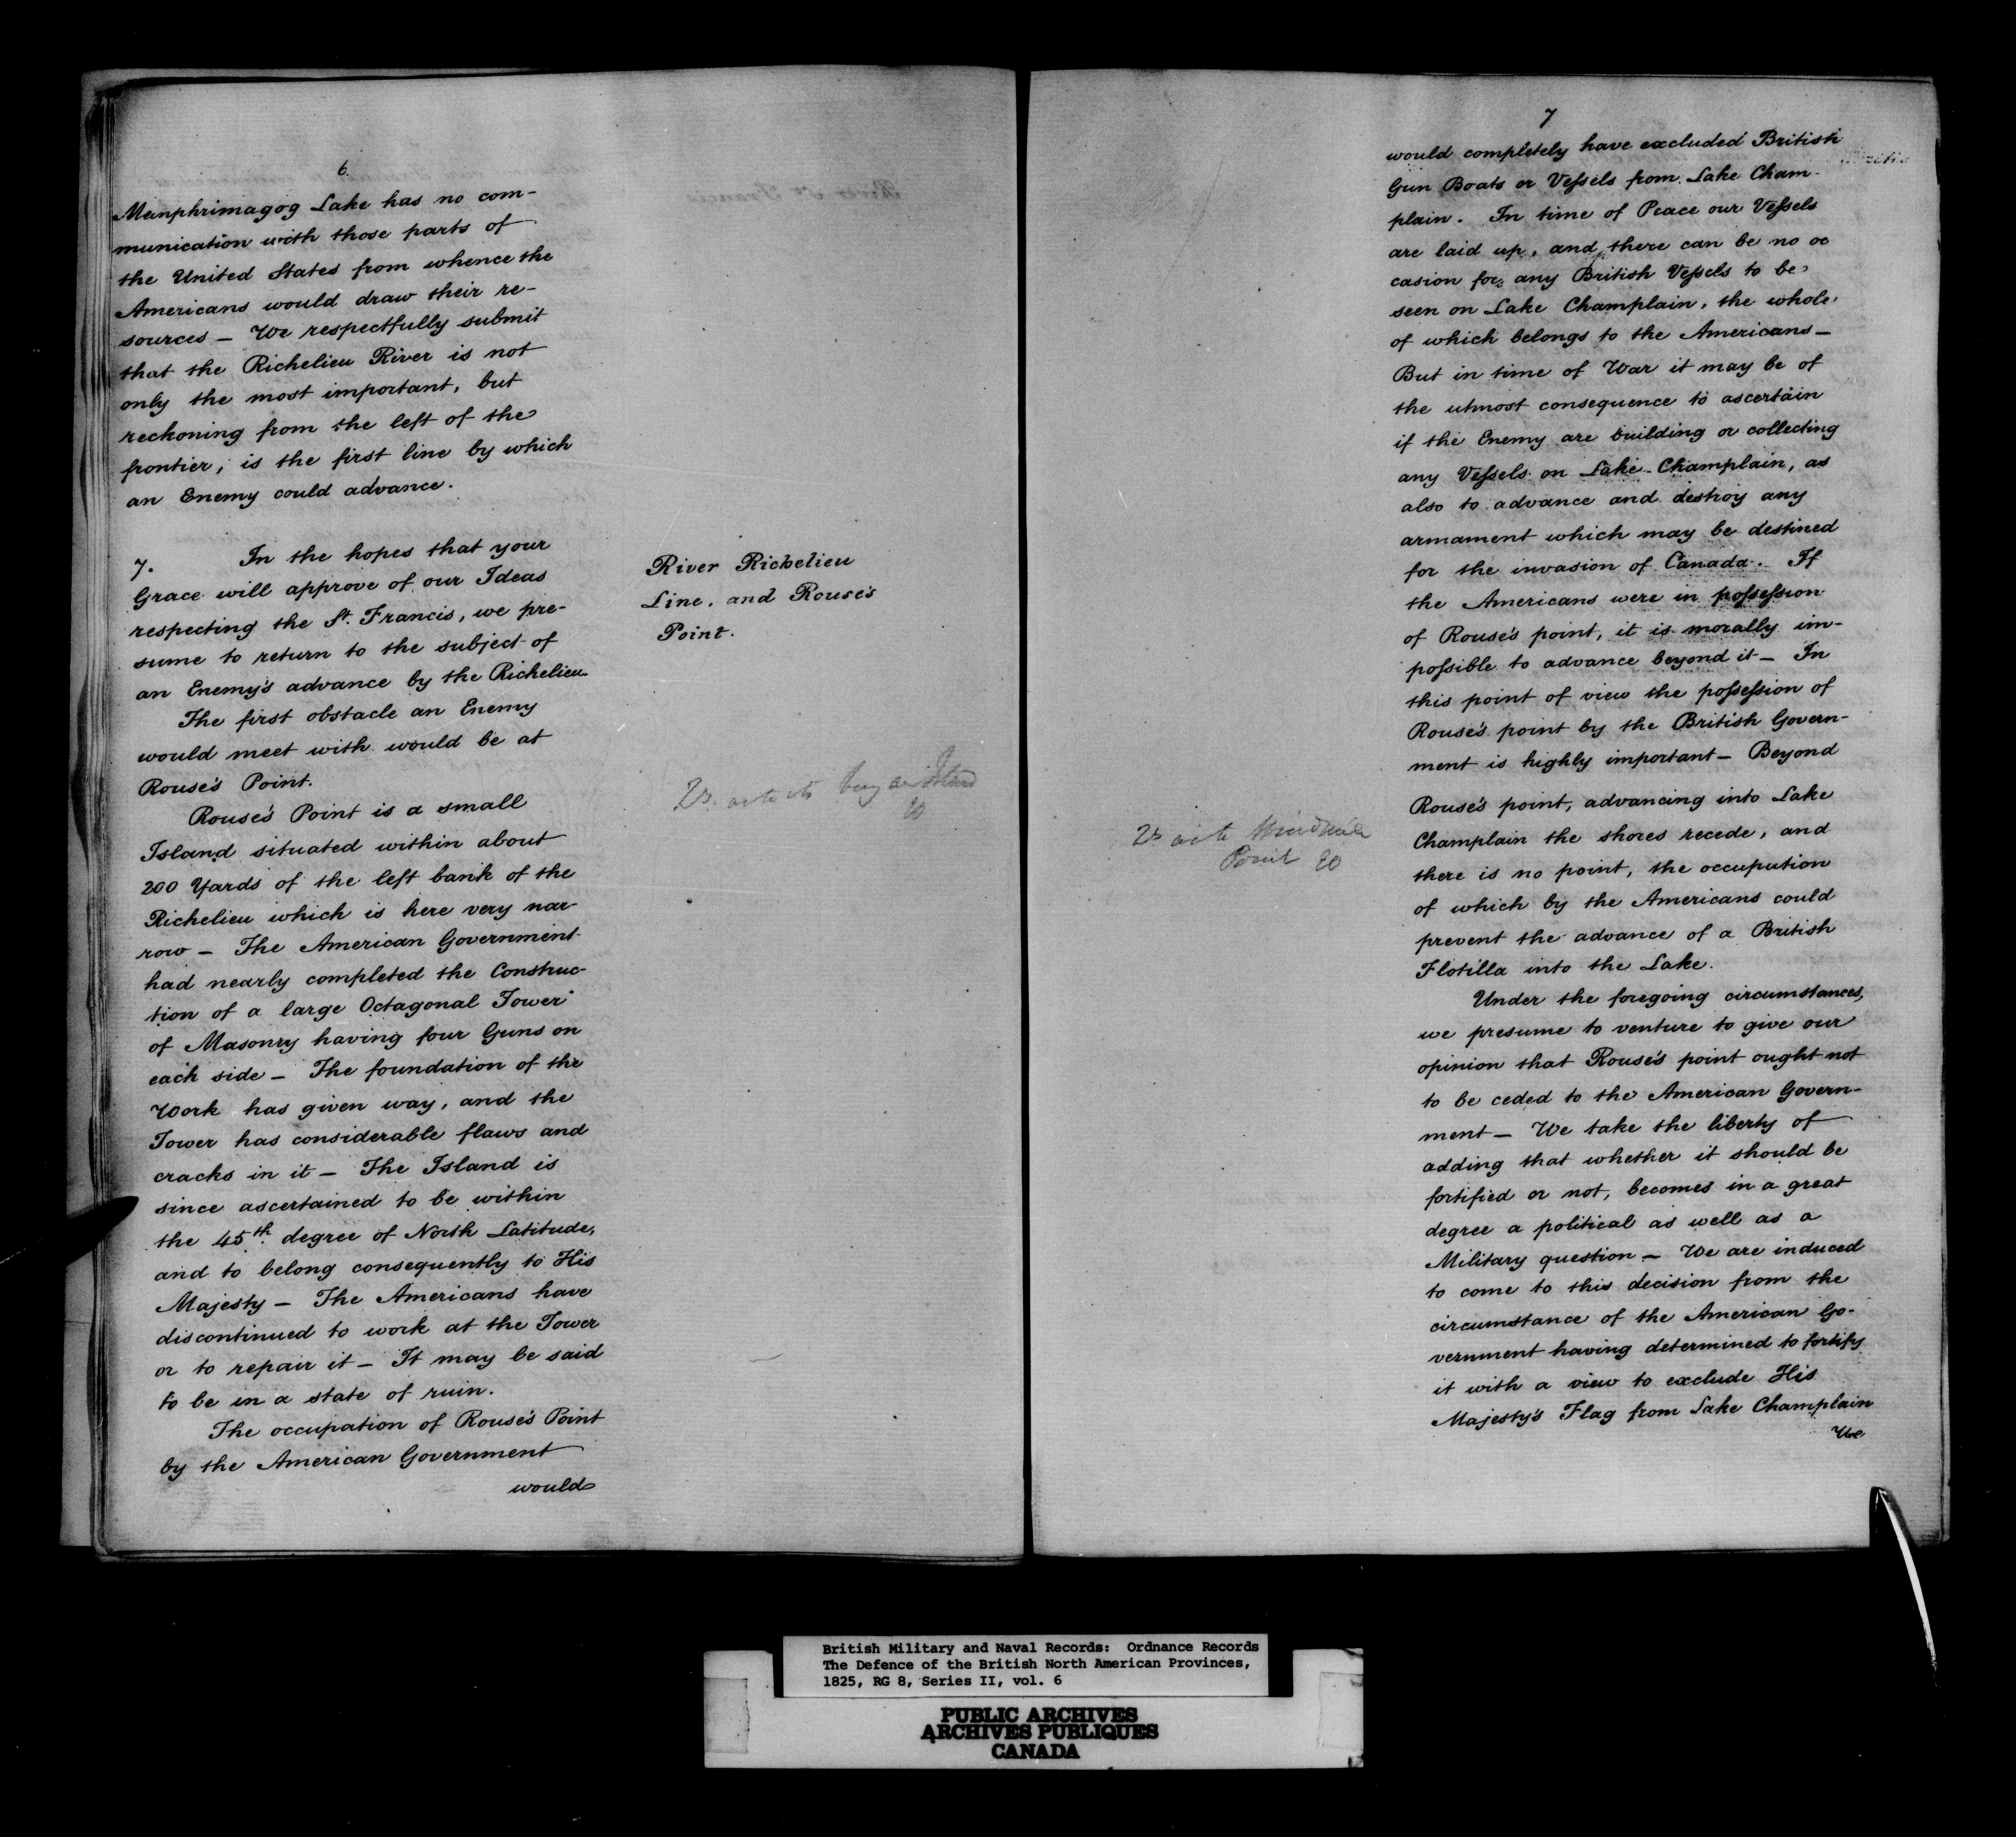 6.
Memphrimagog Lake has no com-
munication with those parts of
the United States from whence the
Americans would draw their re-
sources — We respectfully submit
that the Richelieu River is not
only the most important, but
reckoning from the left of the
frontier, is the first line by which
an Enemy could advance.
7. In the hopes that your
Grace will approve of our Ideas
respecting the St. Francis, we pre-
sume to return to the subject of
an Enemy's advance by the Richelieu
The first obstacle an Enemy
would meet with would be at
Rouse's Point.
Rouse's Point is a small
Island situated within about
200 Yards of the left bank of the
Richelieu which is here very nar-
row — The American Government
had nearly completed the Construc-
tion of a large Octagonal Tower
of Masonry having four Guns on
each side — The foundation of the
Work has given way, and the
Tower has considerable flaws and
cracks in it — The Island is
since ascertained to be within
the 45th degree of North Latitude,
and to belong consequently to His
Majesty — The Americans have
discontinued to work at the Tower
or to repair it — It may be said
to be in a state of ruin.
The occupation of Rouse's Point
by the American Government
would
River Richelieu
Line, and Rouse's
Point.
7
would completely have excluded British
Gun Boats or Vessels from Lake Cham-
plain. In time of Peace our Vessels
are laid up, and there can be no oc
casion for any British Vessels to be
seen on Lake Champlain, the whole
of which belongs to the Americans —
But in time of War it may be of
the utmost consequence to ascertain
if the Enemy are building or collecting
any Vessels on Lake Champlain, as
also to advance and destroy any
armament which may be destined
for the invasion of Canada. If
the Americans were in possession
of Rouse's point, it is morally im-
possible to advance beyond it — In
this point of view the possession of
Rouse's point by the British Govern-
ment is highly important — Beyond
Rouse's point, advancing into Lake
Champlain the shores recede, and
there is no point, the occupation
of which by the Americans could
prevent the advance of a British
Flotilla into the Lake.
Under the foregoing circumstances,
we presume to venture to give our
opinion that Rouse's point ought not
to be ceded to the American Govern-
ment — We take the liberty of
adding that whether it should be
fortified or not, becomes in a great
degree a political as well as a
Military question — We are induced
to come to this decision from the
circumstance of the American Go-
vernment having determined to fortify
it with a view to exclude His
Majesty's Flag from Lake Champlain
We
Point
British Military and Naval Records: Ordnance Records
The Defence of the British North American Provinces,
1825, RG 8, Series II, vol. 6
PUBLIC ARCHIVES
ARCHIVES PUBLIQUES
CANADA